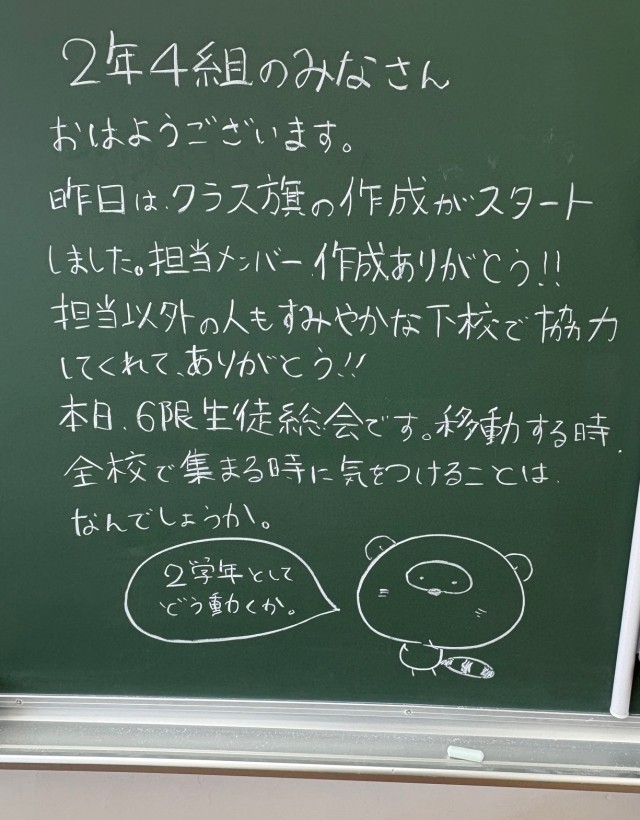 2年4組のみなさん
おはようございます。
昨日は、クラス旗の作成がスタート
しました。担当メンバー、作成ありがとう!!
担当以外の人もすみやかな下校で協力
してくれて、ありがとう!!
本日、6限生徒総会です。移動する時、
全校で集まる時に気をつけることは、
なんでしょうか。
2学年として
どう動くか。